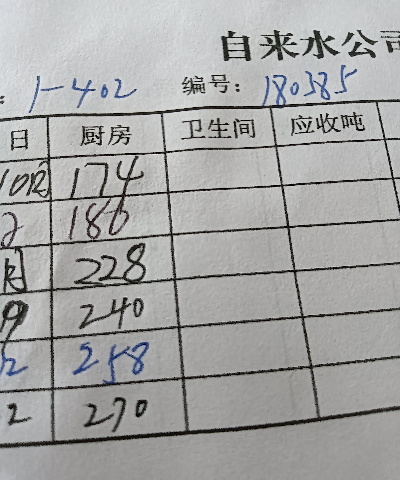 自来水公司
: 1-402 编号: 180385
日 厨房 卫生间 应收吨
10月 174
2 186
月 228
9 240
2 258
2 270